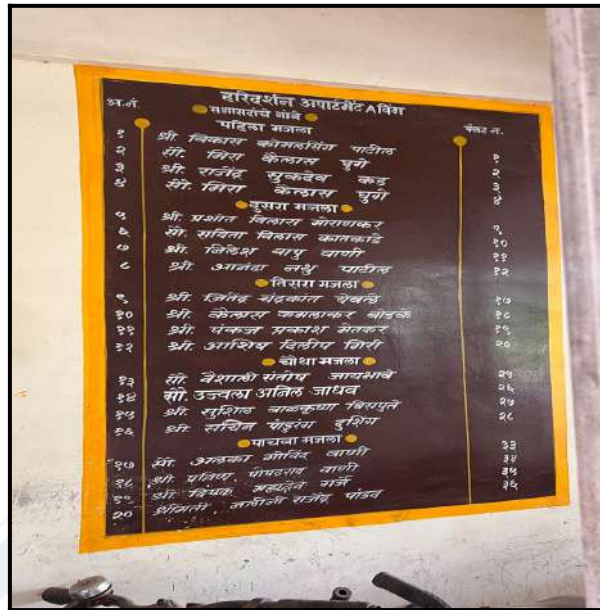 हरिदर्शन अपार्टमेंट A विंग
सभासदांचे नांवे
अ.नं. पहिला मजला फ्लॅट नं.
१ श्री विकास कोमलसिंग पाटील १
२ सौ. मिरा कैलास घुगे २
३ श्री. राजेंद्र सुकदेव कड ३
४ सौ. मिरा कैलास घुगे ४
दुसरा मजला
५ श्री. प्रशांत विलास मोराणकर ९
६ सौ. सविता विलास कातकाडे १०
७ श्री. निलेश बापु वाणी ११
८ श्री. आनंदा नथ्थु पाटील १२
तिसरा मजला
९ श्री. जितेंद्र चंद्रकांत येवले १७
१० श्री. कैलास कमलाकर बोडके १८
११ श्री. पंकज प्रकाश मेतकर १९
१२ श्री. आशिष दिलीप गिरी २०
चौथा मजला
१३ सौ. वैशाली संतोष जायभावे २५
१४ सौ. उज्वला अनिल जाधव २६
१५ श्री. सुशिल बाळकृष्ण बिरपुते २७
१६ श्री. सचिन पांडुरंग दुशिंग २८
पाचवा मजला
१७ सौ. अलका गोविंद वाणी ३३
१८ श्री प्रविण पोपटराव वाणी ३४
१९ श्री दिपक महादेव गर्जे ३५
२० श्रीमती. नलीनी राजेंद्र पांडव ३६